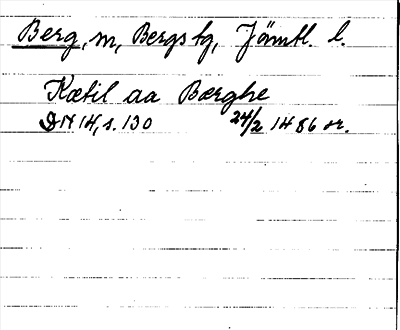 Berg, m, Bergs tg, Jämtl. l.
Kætil aa Bærghe
DN 14, s. 130 24/2 1486 or.